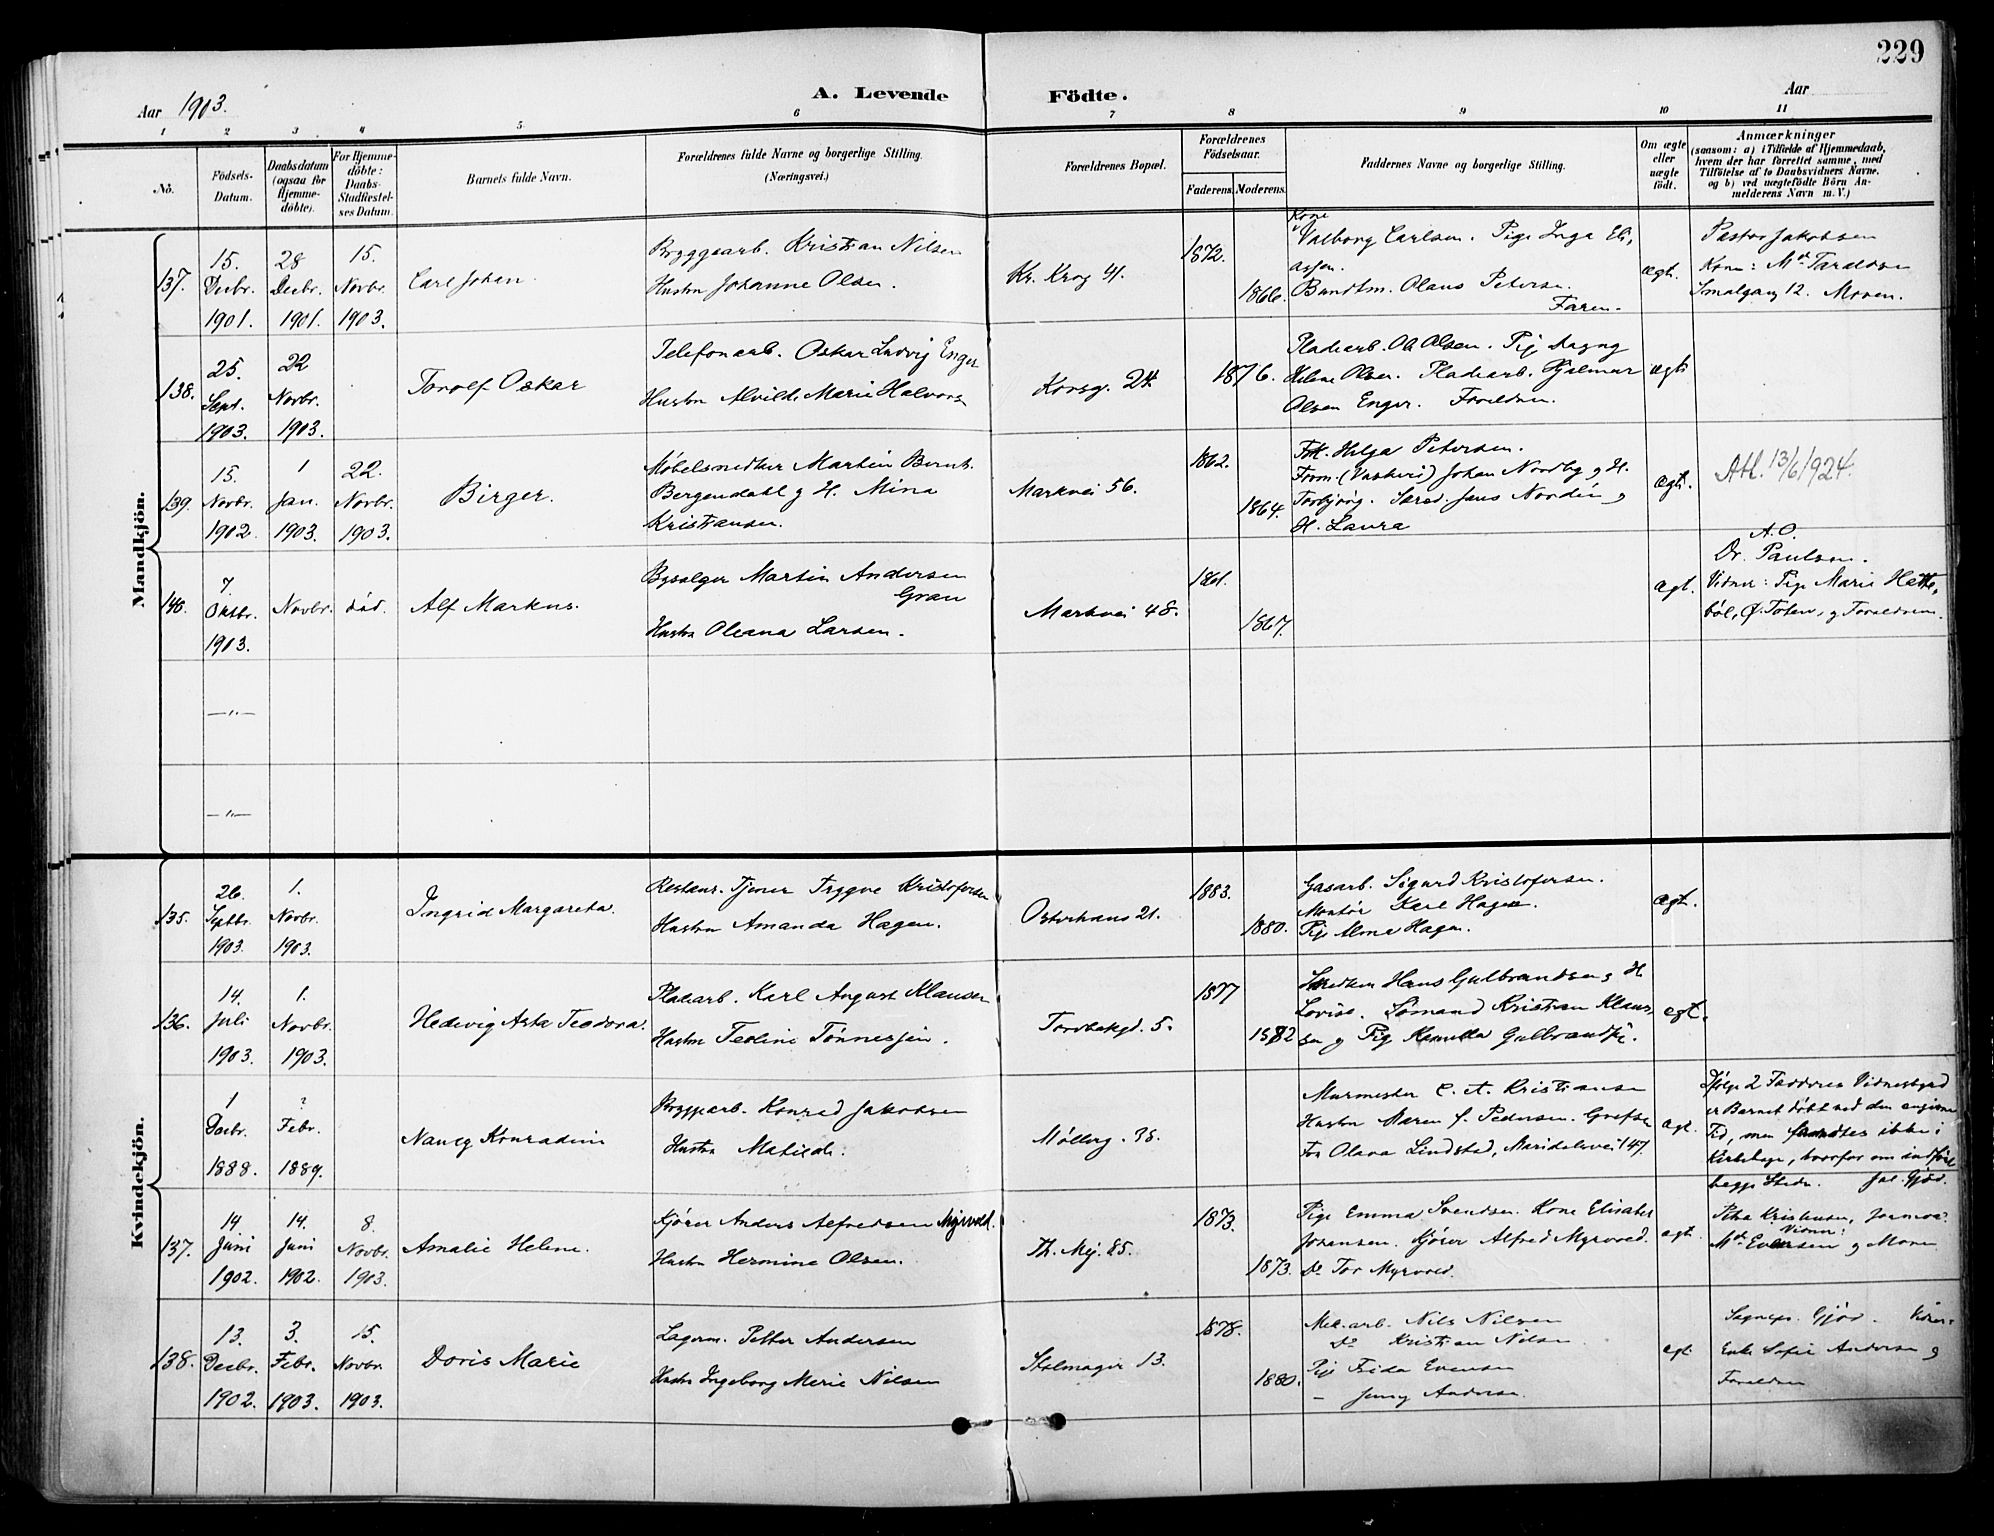 229
A. Levende Födte.
Aar 1903.
Aar
1 2 3 4 5 6 7 8 9 10 11
No.
Födsels-Datum.
Daabsdatum (ogsaa for Hjemmedöbte).
For Hjemmedöbte: Daabs-Stadfæstelses Datum.
Barnets fulde Navn.
Forældrenes fulde Navne og borgerlige Stilling. (Næringsvei.)
Forældrenes Bopæl.
Forældrenes Födselsaar.
Faderens. Moderens.
Faddernes Navne og borgerlige Stilling.
Om ægte eller uægte födt.
Anmærkninger
(saasom: a) i Tilfælde af Hjemmedaab, hvem der har forrettet samme, med Tilföielse af to Daabsvidners Navne, og b) ved uægtefödte Börn Anmelderens Navn m. V.)
Mandkjön.
137.
15. Decbr. 1901.
28 Decbr. 1901.
15. Novbr. 1903.
Carl Johan.
Bryggearb. Kristian Nilsen
Hustru Johanne Olsen.
Kr. Krog 41.
1872.
1866.
Kone
Valborg Carlsen. Pige Inga Eli,
assen.
Bundtm. Olaus Petersen.
Faren.
ægt.
Pastor Jakobsen
Kone: Md Taraldsen
Smalgang 12. Moren.
138.
25. Sept. 1903.
22 Novbr. 1903.
Torolf Oskar
Telefonarb. Oskar Ludvig Enger
Hustru Alvilde Marie Halvors
Korsg. 24.
1876.
Pladearb. Ol Olsen. Pige Dagny
Helene Olsen. Pladearb. Hjalmar
Olsen Enger. Forældren.
ægt
139.
15. Novbr. 1902.
1 Jan. 1903.
22. Novbr. 1903.
Birger.
Møbelsnedker Martin Bernt.
Bergendahl g H. Mina
Kristiansen.
Markvei 56.
1862.
1864.
Frk. Helga Petersen.
Form (Vaskeri) Johan Nordby g H.
Torbjørg. Jens Nordin g
H. Laura
ægt.
Att. 13/6 1924.
140.
7. Oktbr. 1903.
Novbr.
død.
Alf Markus.
Bysælger Martin Andersen
Gran
Hustru Oleana Larsen.
Markvei 48.
1861.
1867.
ægt.
A.O.
Dr. Paulsen.
Vidner: Pige Marie Hætte,
bøl, Ø. Toten, g Forældrene.
—"—
—"—
Kvindekjön.
135.
26. Septbr. 1903
1. Novbr. 1903.
Ingrid Margareta.
Restaur. Tjener Trygve Kristofersen
Hustru Amanda Hagen.
Osterhaus 21.
1883.
1880.
Gasarb. Sigurd Kristofersen.
Montør Karl Hagen.
Pige Alma Hagen.
ægt.
136.
14. Juli 1903.
1. Novbr. 1903.
Hedevig Asta Teodora.
Pladearb. Karl August Klausen
Hustru Teoline Tønnesen.
Torvbakgd. 5.
1877
1882
Hans Gulbrandsen g H
Lovise. Sømand Kristian Klau
sen g Pige Gulbrandsen.
ægt.
1 Decbr. 1888.
? Febr. 1889.
Nancy Konradine
Bryggearb. Konrad Jakobsen
Hustru Matilde.
Møllerg. 38.
Murmester C. A. Kristiansen
Hustru Maren f. Pedersen. Grefse
Fru Olava Lindstad, Maridalsvei 147.
ægt.
Ifølge 2 Fadderes Vidnesbyrd
er Barnet døbt ved den angivne
Tid, men fandtes ikke i
Kirkebøge, hvorfor om indføre
begge Steder. Gjør.
137.
14 Juni 1902.
14. Juni 1902.
8. Novbr. 1903.
Amalie Helene.
Kjører Anders Alfredsen Myrvold.
Hustru Hermine Olsen.
Th. Mej. 85.
1873.
1873.
Pige Emma Svendsen. Kone Elisabet
Johansen. Kjører Alfred Myrvold.
Do Tor Myrvold.
ægt.
Petra Kristensen, Jormoe?
Vidner:
Md Evensen g Moren
138.
13. Decbr. 1902.
3. Febr. 1903.
15. Novbr. 1903.
Doris Marie
Lagerm. Petter Andersen
Hustru Ingeborg Marie Nilsen
Stolmager 13.
1878.
1880.
Mek. arb. Nils Nilsen
Do Kristian Nilsen
Pige Frida Evensen
— Jenny Andersen.
ægt
Sognepr. Gjør. Vidner:
Enke Sofie Andersen g
Forældren